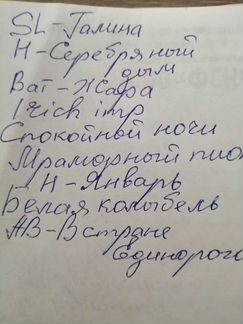 SL-Галина
Н-Серебряный
дым
Ват-Жара
Irich imp
Спокойной ночи
Мраморный пио
Н-Январь
Белая колыбель
АВ-В стране
Единорого